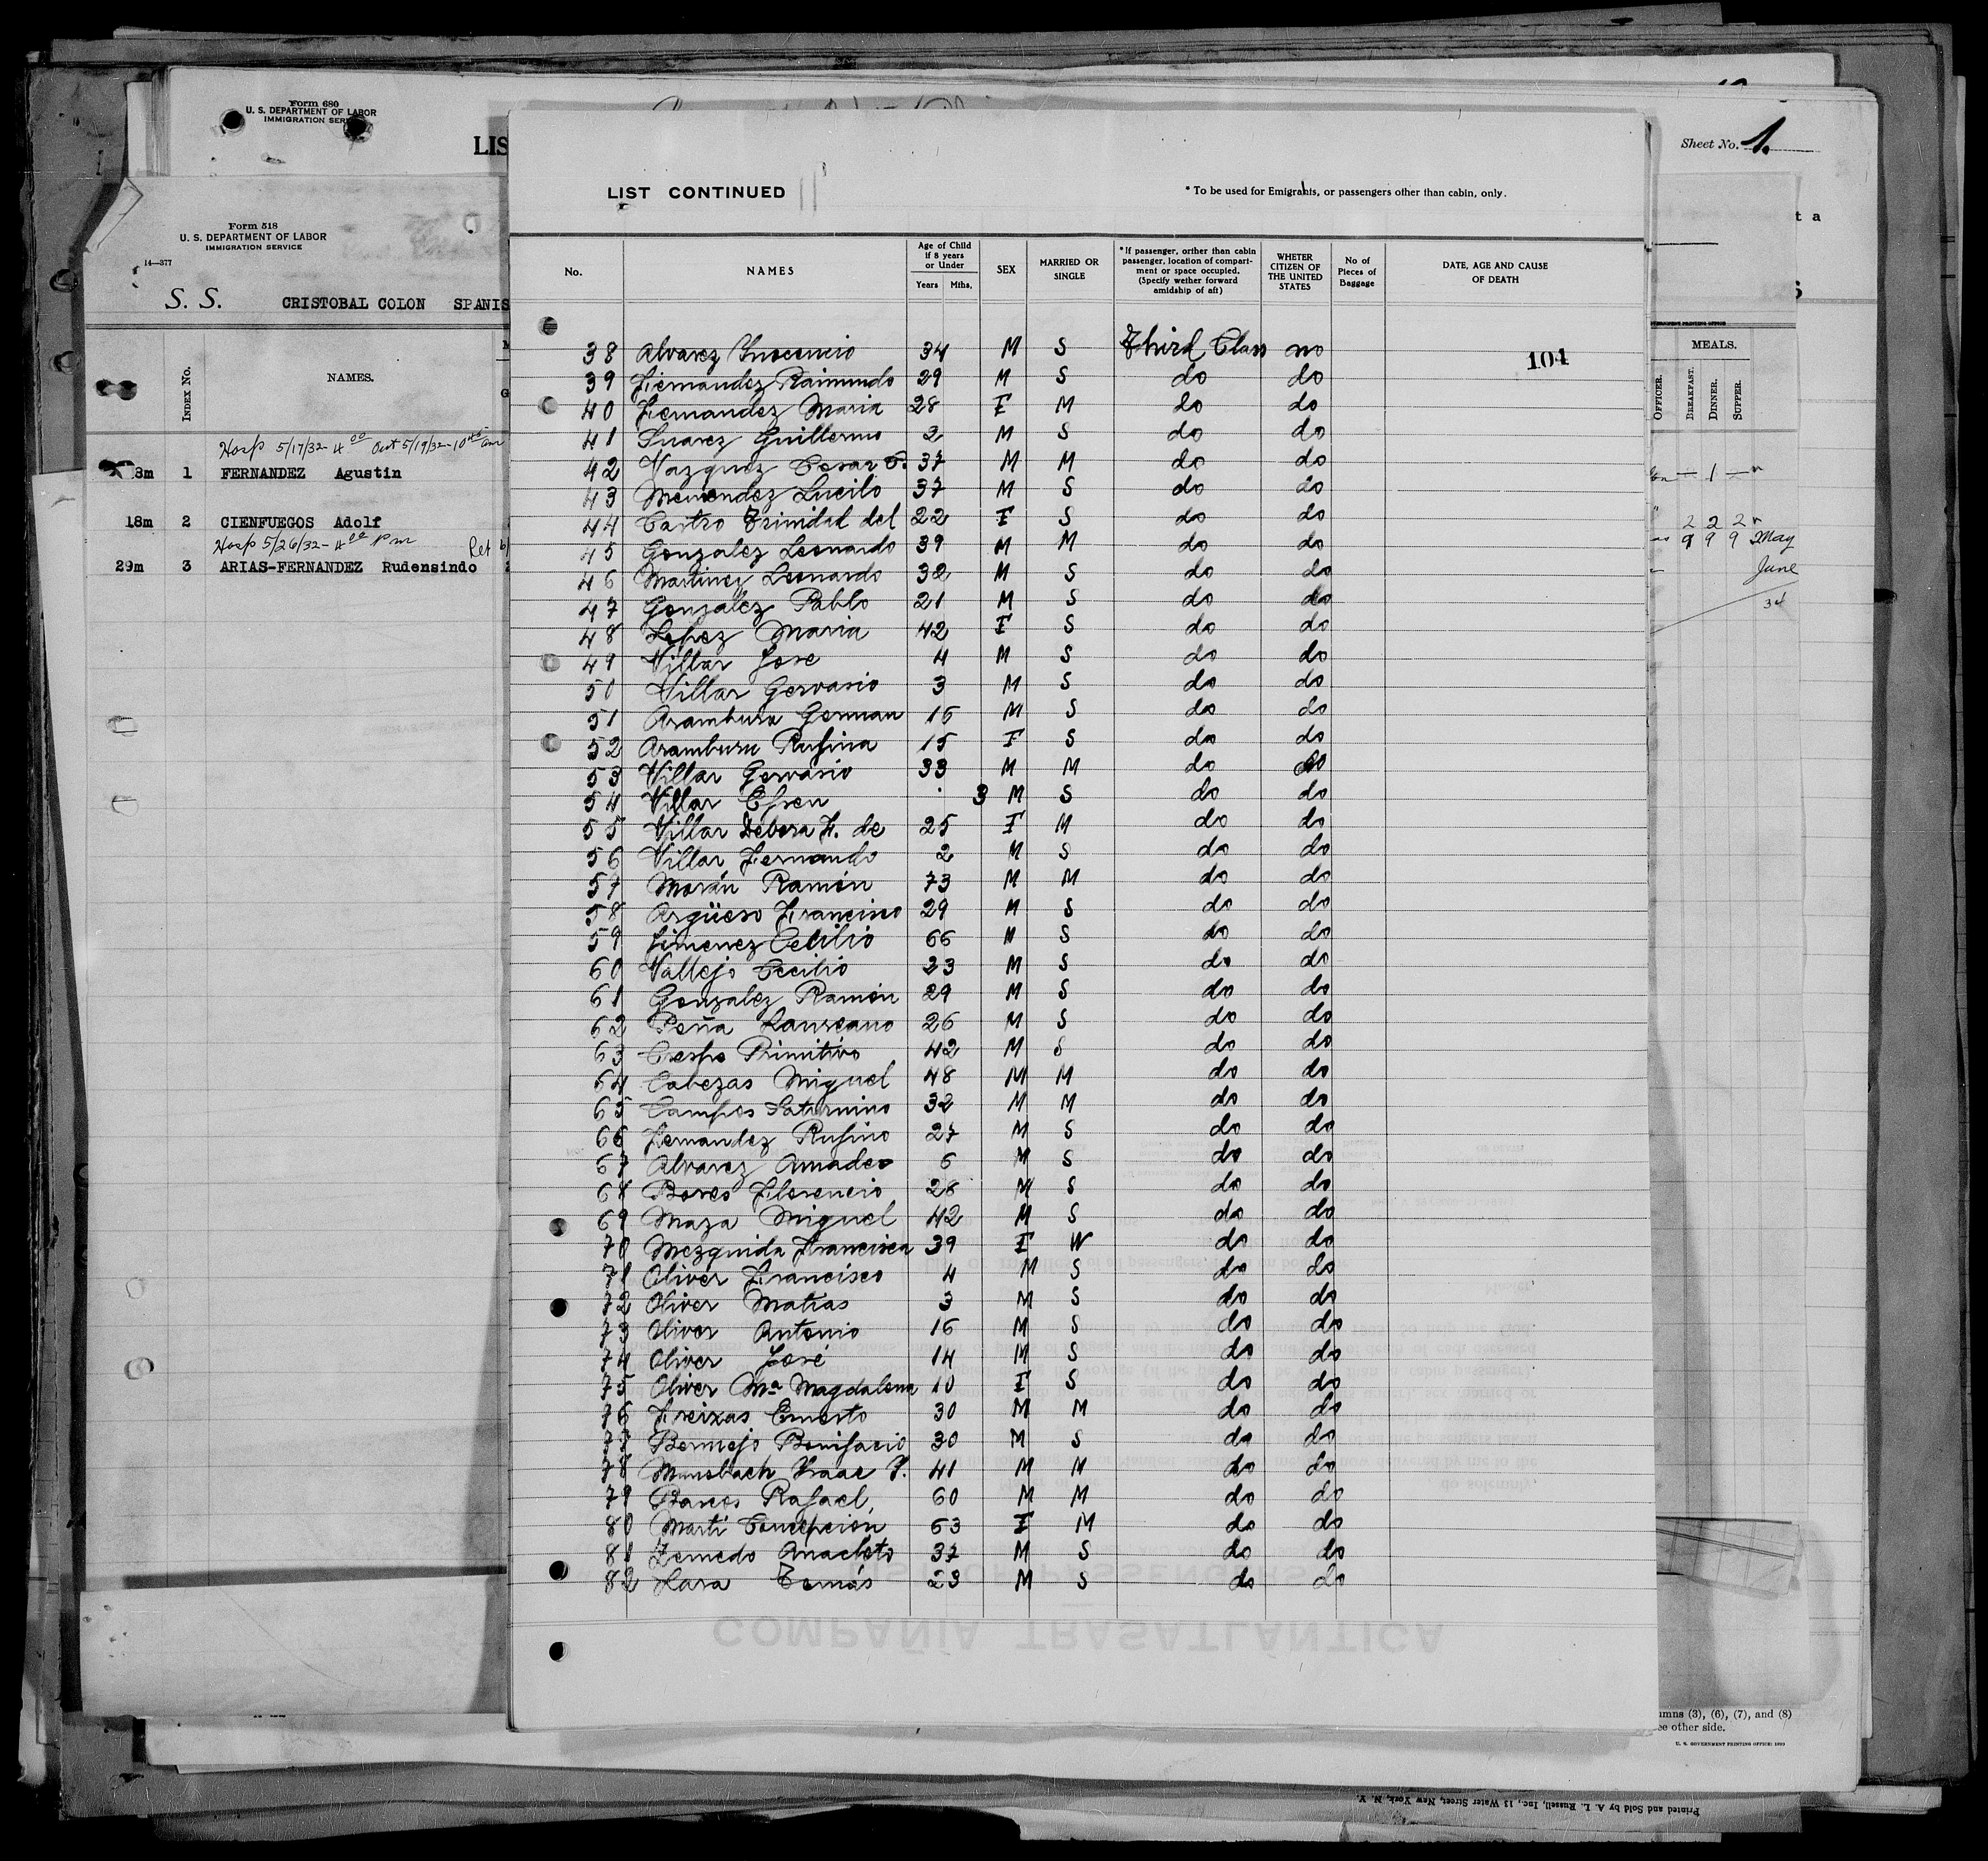 Form 680
U. S. DEPARTMENT OF LABOR
IMMIGRATION SERV
LIS
Sheet No. 1.
Form 518
U. S. DEPARTMENT OF LABOR
IMMIGRATION SERVICE
14—377
S. S. CRISTOBAL COLON SPANIS
INDEX No.
NAMES.
Hosp 5/17/32- 4 00 Out 5/19/32-10 45 am
8m 1 FERNANDEZ Agustin
18m 2 CIENFUEGOS Adolf
Hosp 5/26/32- 4 00 pm
29m 3 ARIAS-FERNANDEZ Rudensindo
LIST CONTINUED
* To be used for Emigrants, or passengers other than cabin, only.
No. NAMES Age of Child if 8 years or Under Years Mths, SEX MARRIED OR SINGLE * If passenger, orther than cabin passenger, location of compartment or space occupied. (Specify wether forward amidship of aft) WHETER CITIZEN OF THE UNITED STATES No of Pieces of Baggage DATE, AGE AND CAUSE OF DEATH
104
38 Alvarez Inocencio 34 M S Third Class no
39 Fernandez Raimundo 29 M S do do
40 Fernandez Maria 28 F M do do
41 Suarez Guillermo 2 M S do do
42 Vazquez Cesar C. 37 M M do do
43 Menendez Lucilo 37 M S do do
44 Castro Trinidad del 22 F S do do
45 Gonzalez Leonardo 39 M M do do
46 Martinez Leonardo 32 M S do do
47 Gonzalez Pablo 21 M S do do
48 Lopez Maria 42 F S do do
49 Villar Jose 4 M S do do
50 Villar Gervasio 3 M S do do
51 Aramburu German 16 M S do do
52 Aramburu Rufina 15 F S do do
53 Villar Gervasio 33 M M do do
54 Villar Efren 3 M S do do
55 Villar Debora F. de 25 F M do do
56 Villar Fernando 2 M S do do
57 Morán Ramón 73 M M do do
58 Argüeso Francisco 29 M S do do
59 Jimenez Cecilio 66 M S do do
60 Vallejo Cecilio 23 M S do do
61 Gonzalez Ramón 29 M S do do
62 Peña Laureano 26 M S do do
63 Crespo Primitivo 42 M S do do
64 Cabezas Miguel 48 M M do do
65 Campos Saturnino 32 M M do do
66 Fernandez Rufino 27 M S do do
67 Alvarez Amadeo 6 M S do do
68 Bores Florencio 28 M S do do
69 Maza Miguel 42 M S do do
70 Mezquida Francisca 39 F W do do
71 Oliver Francisco 4 M S do do
72 Oliver Matias 3 M S do do
73 Oliver Antonio 16 M S do do
74 Oliver José 14 M S do do
75 Oliver Mª Magdalena 10 F S do do
76 Freixas Ernesto 30 M M do do
77 Bermejo Bonifacio 30 M S do do
78 Mansbach Isaac 41 M M do do
79 Bares Rafael, 60 M M do do
80 Martí Concepción 53 F M do do
81 Zemedo Anacleto 37 M S do do
82 Lara Tomás 23 M S do do
COMPAÑIA TRASATLANTICA
MEALS.
OFFICER. BREAKFAST. DINNER. SUPPER.
1
2 2 2
9 9 9 May
June
umns (3), (6), (7), and (8)
ee other side.
U. S. GOVERNMENT PRINTING OFFICE: 1929
Printed and Sold by A. L. Russell, Inc., 13 Water Street, New York, N. Y.